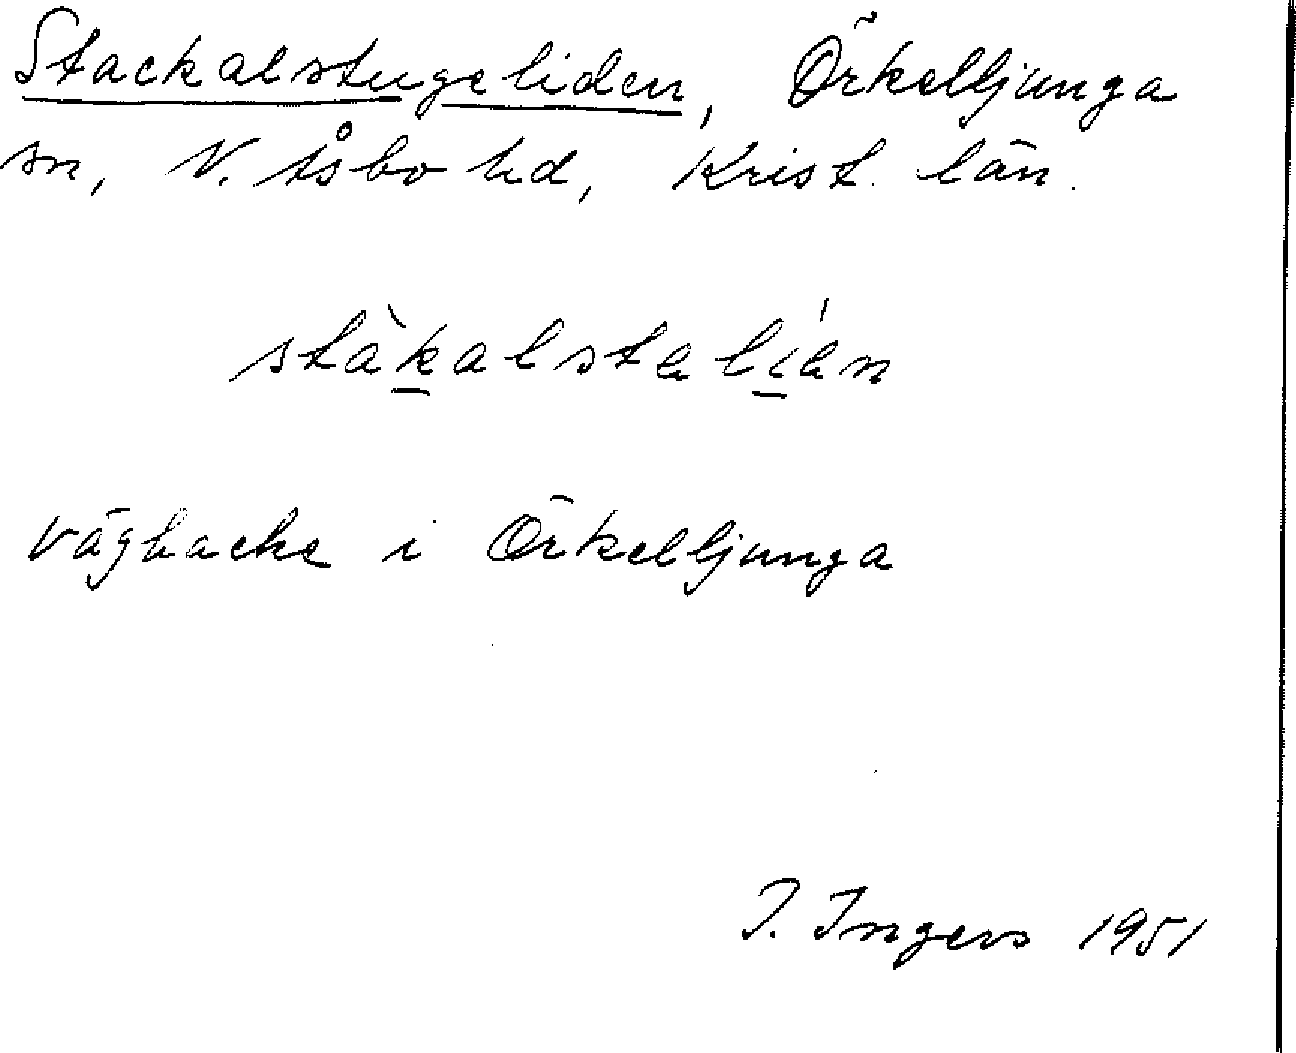 Stackalstugeliden, Örkelljunga
sn, N. Åsbo hd, Krist. län.
stàkalstalían
Vägbacke i Örkelljunga
I. Ingers 1951